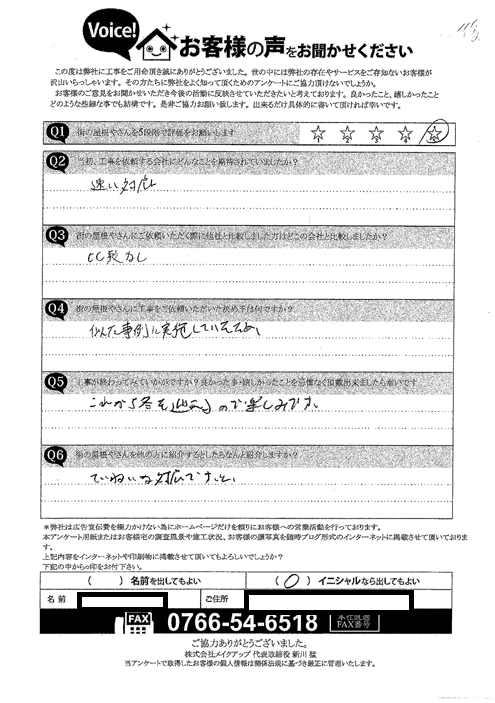 Voice!
お客様の声をお聞かせください
この度は弊社に工事をご用命頂き誠にありがとうございました。世の中には弊社の存在やサービスをご存知ないお客様が
沢山いらっしゃいます。その方たちに弊社をよく知って頂くためのアンケートにご協力頂けないでしょうか。
お客様のご意見をお聞かせいただき今後の活動に反映させていただきたいと考えております。良かったこと、嬉しかったこと
どのような些細な事でも結構です。是非ご協力お願い致します。出来るだけ具体的に書いて頂ければ幸いです。
Q1 街の屋根やさんを5段階で評価をお願いします
Q2 当初、工事を依頼する会社にどんなことを期待されていましたか？
速い対応
Q3 街の屋根やさんにご依頼いただく際に他社と比較しました方はどこの会社と比較しましたか？
比較なし
Q4 街の屋根やさんに工事をご依頼いただいた決め手は何ですか？
似た事例に実施していたため
Q5 工事が終わってみていかがですか？良かった事・嬉しかったことを忌憚なく頂戴出来ましたら幸いです
これから冬を迎えるので楽しみです。
Q6 街の屋根やさんを他の方に紹介するとしたらなんと紹介しますか？
ていねいな対応ですと。
＊弊社は広告宣伝費を極力かけない為にホームページだけを頼りにお客様への営業活動を行っております。
本アンケート用紙またはお客様宅の調査風景や施工状況、お客様の顔写真を随時ブログ形式のインターネットに掲載させて頂いておりま
す。
上記内容をインターネットや印刷物に掲載させて頂いてもよろしいでしょうか？
下記の中から○印をお付下さい。
（　）名前を出してもよい （○）イニシャルなら出してもよい
名前 ご住所
FAX 0766-54-6518 本社直通 FAX番号
ご協力ありがとうございました。
株式会社メイクアップ 代表取締役 新川 猛
当アンケートで取得したお客様の個人情報は関係法規に基づき厳正に管理いたします。